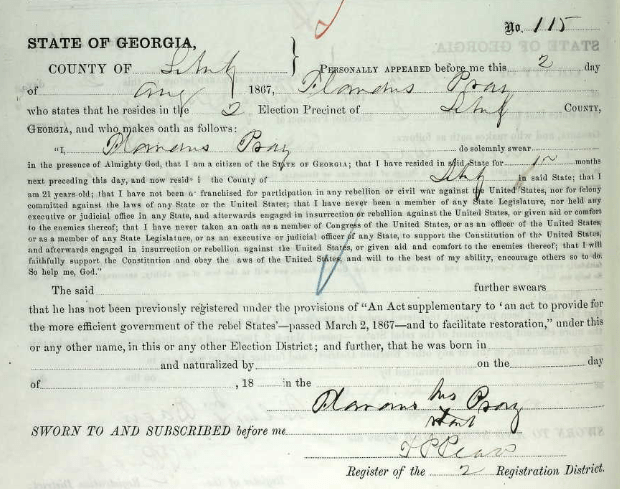 No. 115
STATE OF GEORGIA,
COUNTY OF } PERSONALLY APPEARED before me this 2 day
of Aug 1867,
who states that he resides in the 2 Election Precinct of COUNTY,
GEORGIA, and who makes oath as follows:
"I, do solemnly swear
in the presence of Almighty God, that I am a citizen of the STATE OF GEORGIA; that I have resided in said State for 12 months
next preceding this day, and now reside in the County of in said State; that I
am 21 years old; that I have not been disfranchised for participation in any rebellion or civil war against the United States, nor for felony
committed against the laws of any State or the United States; that I have never been a member of any State Legislature, nor held any
executive or judicial office in any State, and afterwards engaged in insurrection or rebellion against the United States, or given aid or comfort
to the enemies thereof; that I have never taken an oath as a member of Congress of the United States, or as an officer of the United States,
or as a member of any State Legislature, or as an executive or judicial officer of any State, to support the Constitution of the United States,
and afterwards engaged in insurrection or rebellion against the United States, or given aid and comfort to the enemies thereof; that I will
faithfully support the Constitution and obey the laws of the United States, and will to the best of my ability, encourage others so to do.
So help me, God."
The said further swears
that he has not been previously registered under the provisions of "An Act supplementary to 'an act to provide for
the more efficient government of the rebel States'—passed March 2, 1867—and to facilitate restoration," under this
or any other name, in this or any other Election District; and further, that he was born in
and naturalized by on the day
of , 18 in the
his
SWORN TO AND SUBSCRIBED before me
Register of the 2 Registration District.